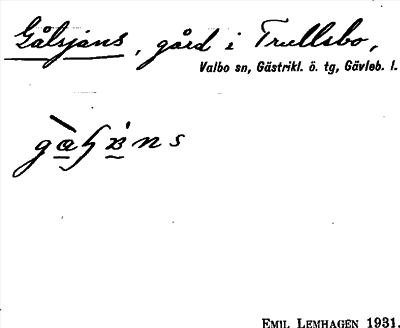 Gålsjans, gård i Trullsbo,
Valbo sn, Gästrikl. ö. tg, Gävleb. l.
EMIL LEMHAGEN 1931.